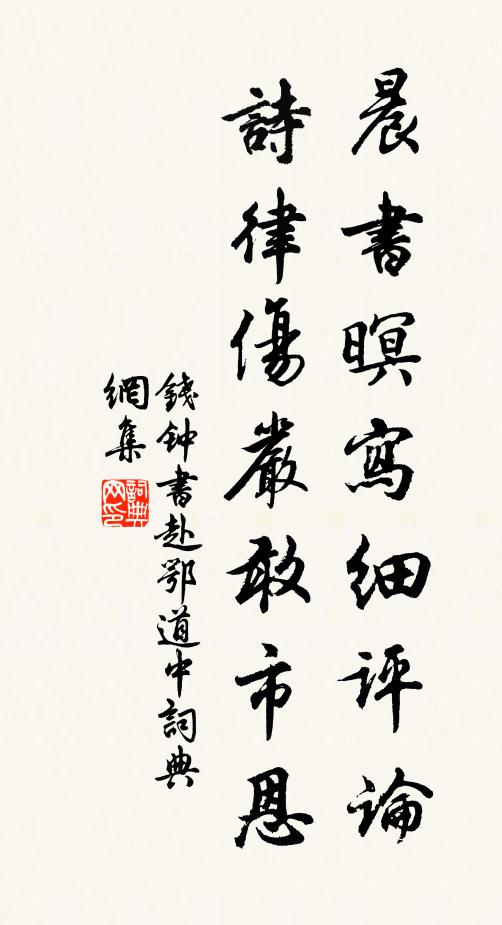 晨書暝寫細評論
詩律傷嚴敢市恩
錢钟書赴鄂道中詞典
網集
詞典
网印